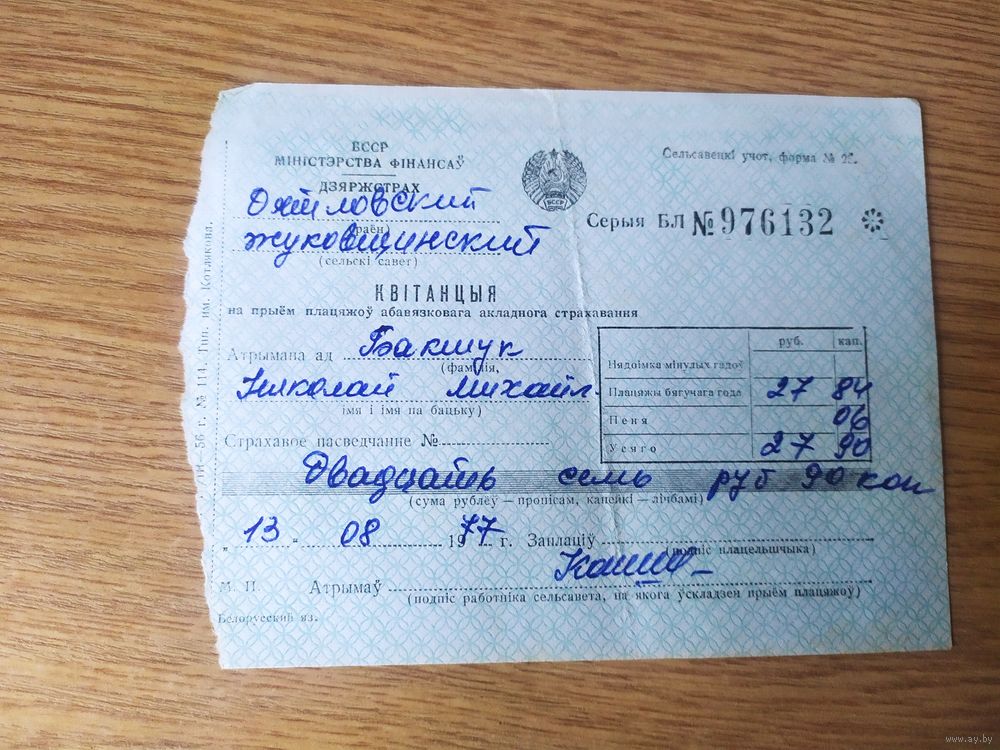 БССР
МІНІСТЭРСТВА ФІНАНСАЎ
ДЗЯРЖСТРАХ
Дятловский
(раён)
жуковщинский
(сельскі савет)
Сельсавецкі учот, форма №
Серыя БЛ № 976132
КВІТАНЦЫЯ
на прыём плацяжоў абавязковага акладнога страхавання
Атрымана ад Бакшук
(фамілія,
Николай Михайл.
імя і імя па бацьку)
Страхавое пасведчанне №
руб. кап.
Нядоімка мінулых гадоў
Плацяжы бягучага года 27 84
Пеня 06
Усяго 27 90
Двадцать семь руб 90 коп
(сума рублеў — пропісам, капейкі — лічбамі)
„13" 08 1977 г. Заплаціў
(подпіс плацельшчыка)
М. П. Атрымаў
(подпіс работніка сельсавета, на якога ўскладзен прыём плацяжоў)
Белорусский яз.
56 г. № 114. Тип. им. Котлякова.
www.ay.by